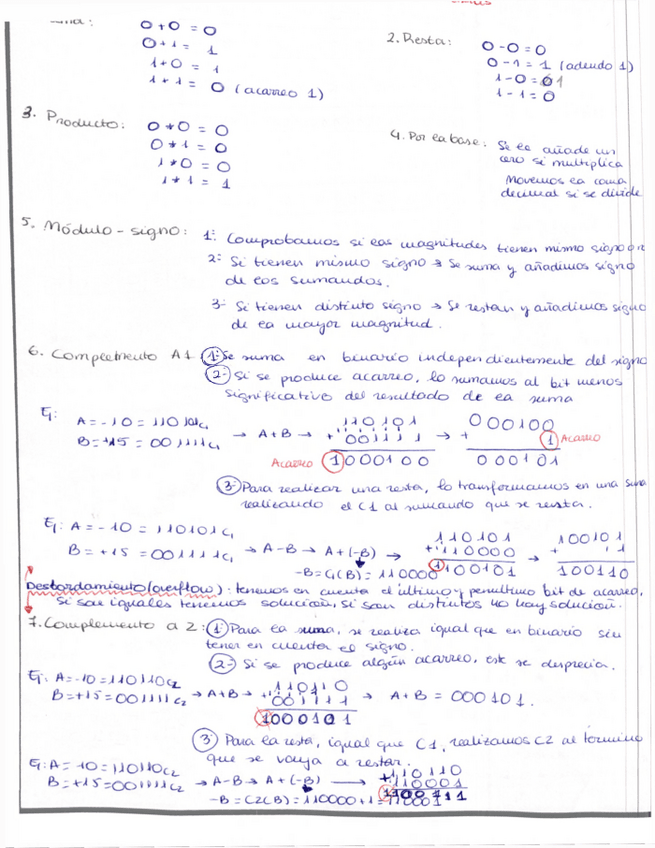 0+0 = 0
0+1 = 1
1+0 = 1
1+1 = 0 (acarreo 1)
2. Resta: 0-0=0
0-1 = 1 (adeudo 1)
1-0=1
1-1=0
3. Producto: 0*0 = 0
0*1 = 0
1*0 = 0
1*1 = 1
4. Por la base: Se le añade un
cero si multiplica
Movemos la coma
decimal si se divide
5. Módulo-signo: 1º Comprobamos si las magnitudes tienen mismo signo o
2º Si tienen mismo signo → Se suma y añadimos signo
de los sumandos.
3º Si tienen distinto signo → Se restan y añadimos signo
de la mayor magnitud.
6. Complemento A1 1º Se suma en binario independientemente del signo
2º Si se produce acarreo, lo sumamos al bit menos
significativo del resultado de la suma
Ej: A = -10 = 110101C1
B = +15 = 001111C1 → A+B →
110101
+ 001111
Acarreo 1000100
→
000100
+ 1 Acarreo
000101
3º Para realizar una resta, lo transformamos en una suma
realizando el C1 al sumando que se resta.
Ej: A = -10 = 110101C1
B = +15 = 001111C1 → A-B → A+(-B) →
-B = C1(B) = 110000
110101
+ 110000
1100101
→
100101
+ 1
100110
Desbordamiento (overflow): tenemos en cuenta el último y penúltimo bit de acarreo,
si son iguales tenemos solución, si son distintos no hay solución.
7. Complemento a 2: 1º Para la suma, se realiza igual que en binario sin
tener en cuenta el signo.
2º Si se produce algún acarreo, este se desprecia.
Ej: A = -10 = 110110C2
B = +15 = 001111C2 → A+B →
110110
+ 001111
1000101
→ A+B = 000101.
3º Para la resta, igual que C1, realizamos C2 al término
que se vaya a restar.
Ej: A = -10 = 110110C2
B = +15 = 001111C2 → A-B → A+(-B) →
-B = C2(B) = 110000+1 = 110001
+110110
110001
1100111